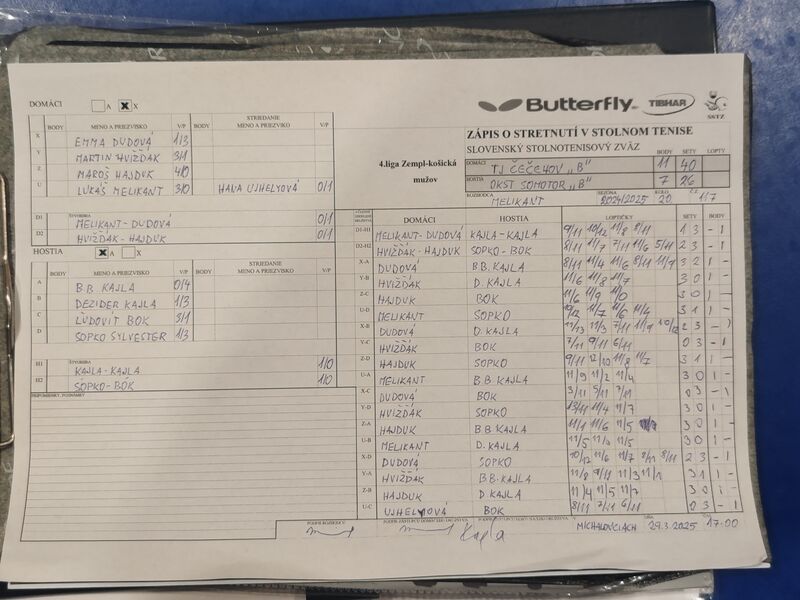 DOMÁCI A X
Butterfly TIBHAR SSTZ
STRIEDANIE
BODY MENO A PRIEZVISKO V/P BODY MENO A PRIEZVISKO V/P
X EMMA DUDOVÁ 1/3
Y MARTIN HVIŽĎÁK 3/1
Z MAROŠ HAJDUK 4/0
U LUKÁŠ MELIKANT 3/0 HANA UJHELYOVÁ 0/1
ZÁPIS O STRETNUTÍ V STOLNOM TENISE
SLOVENSKÝ STOLNOTENISOVÝ ZVÄZ BODY SETY LOPTY
4.liga Zempl-košická mužov
DOMÁCI TJ ČEČEHOV "B" 11 40
HOSTIA OKST SOMOTOR "B" 7 26
ROZHODCA MELIKANT SEZÓNA 2024/2025 KOLO 20 117
ŠTVORHRA
D1 MELIKANT-DUDOVÁ 0/1
D2 HVIŽĎÁK-HAJDUK 0/1
HOSTIA
STRIEDANIE
BODY MENO A PRIEZVISKO V/P BODY MENO A PRIEZVISKO V/P
A B.B. KAJLA 0/4
B DEZIDER KAJLA 1/3
C ĽUDOVÍT BOK 3/1
D SOPKO SYLVESTER 1/3
ŠTVORHRA
H1 KAJLA-KAJLA 1/0
H2 SOPKO-BOK 1/0
PRIPOMIENKY, POZNÁMKY
DOMÁCI HOSTIA LOPTIČKY SETY BODY
D1-H1 MELIKANT-DUDOVÁ KAJLA-KAJLA 9/11 10/12 11/8 8/11 1 3 - 1
D2-H2 HVIŽĎÁK-HAJDUK SOPKO-BOK 8/11 11/7 7/11 11/6 5/11 2 3 - 1
X-A DUDOVÁ B.B. KAJLA 8/11 11/4 11/6 8/11 11/7 3 2 1 -
Y-B HVIŽĎÁK D. KAJLA 11/6 11/8 11/7 3 0 1 -
Z-C HAJDUK BOK 11/6 11/9 11/0 3 0 1 -
U-D MELIKANT SOPKO 10/12 11/7 11/6 11/4 3 1 1 -
X-B DUDOVÁ D. KAJLA 11/13 11/3 7/11 11/9 10/12 2 3 - 1
Y-C HVIŽĎÁK BOK 7/11 9/11 6/11 0 3 - 1
Z-D HAJDUK SOPKO 9/11 12/10 11/8 11/7 3 1 1 -
U-A MELIKANT B.B. KAJLA 11/9 11/2 11/4 3 0 1 -
X-C DUDOVÁ BOK 3/11 5/11 7/11 0 3 - 1
Y-D HVIŽĎÁK SOPKO 13/11 11/4 11/7 3 0 1 -
Z-A HAJDUK B.B KAJLA 11/1 11/6 11/5 3 0 1 -
U-B MELIKANT D. KAJLA 11/5 11/5 3 0 1 -
X-D DUDOVÁ SOPKO 10/12 11/6 11/7 8/11 8/11 2 3 - 1
Y-A HVIŽĎÁK B.B. KAJLA 11/8 9/11 11/3 11/1 3 1 1 -
Z-B HAJDUK D KAJLA 11/4 11/5 11/7 3 0 1 -
U-C UJHELYOVÁ BOK 8/11 7/11 6/11 0 3 - 1
PODPIS ROZHODCU Kajla MICHALOVCIACH 29.3.2025 17:00